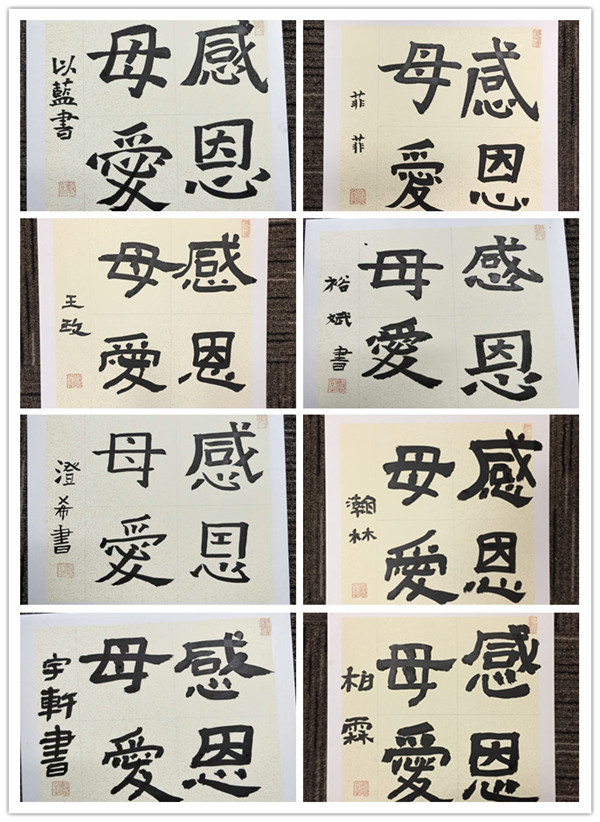 感恩
母愛
以藍書
感恩
母愛
菲菲
感恩
母愛
王政
感恩
母愛
裕斌書
感恩
母愛
澄希書
感恩
母愛
瀚林
感恩
母愛
宇軒書
感恩
母愛
柏霖